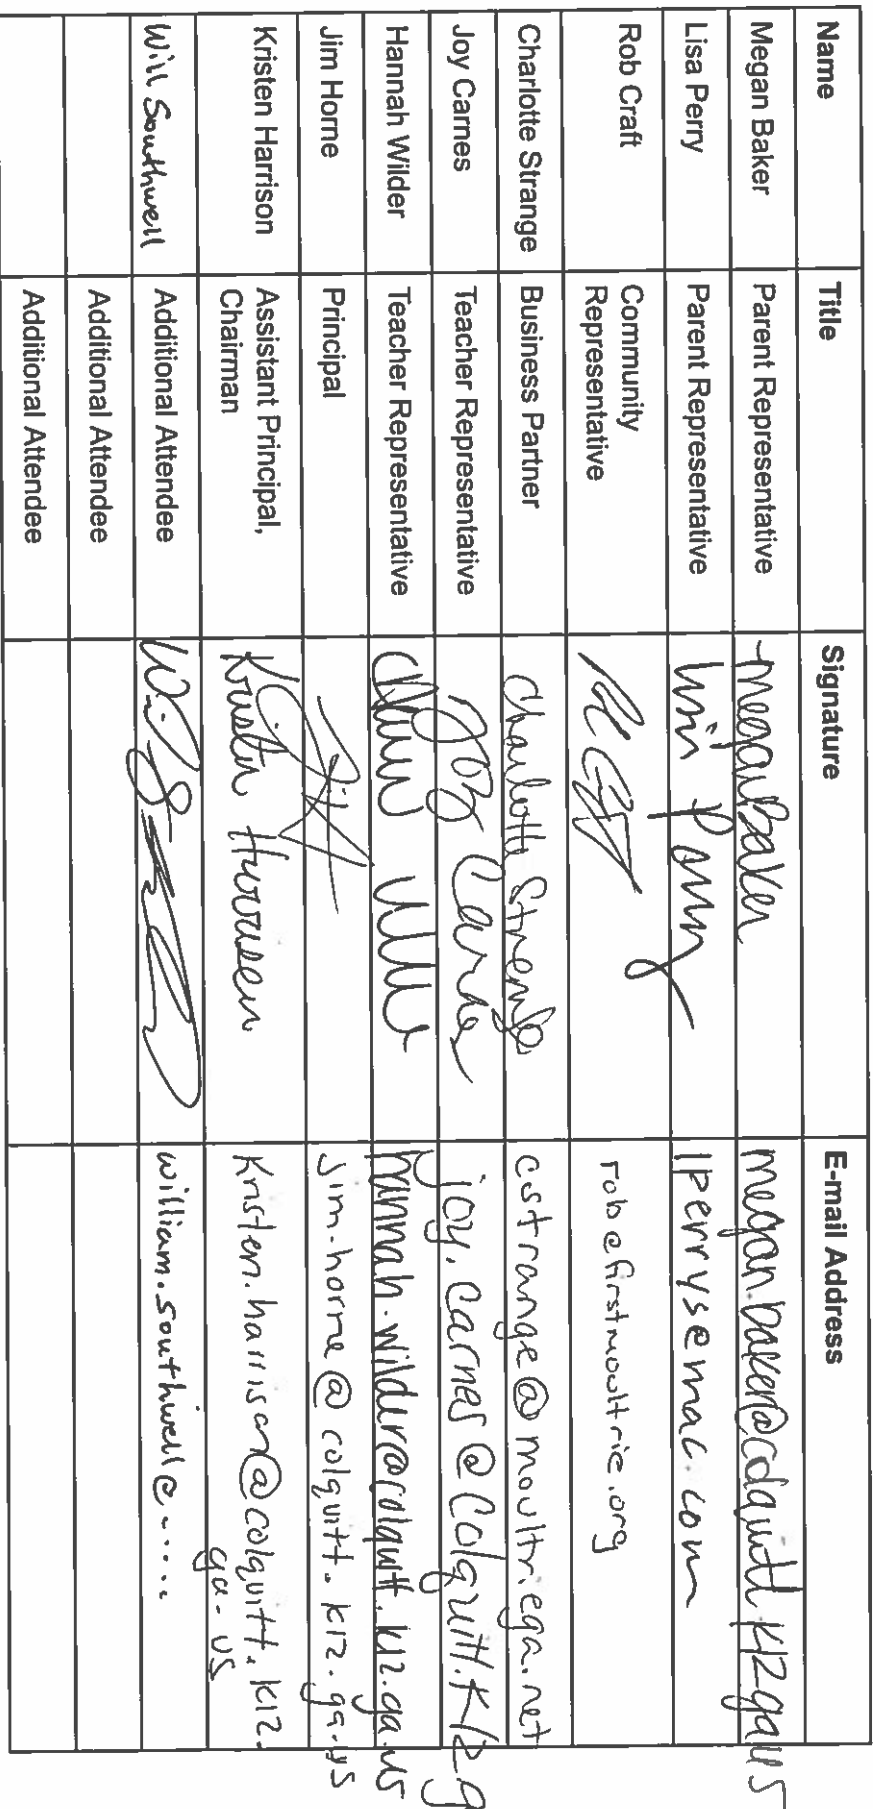 Name Title Signature E-mail Address
Megan Baker Parent Representative Megan Baker megan.baker@colquitt.k12.ga.us
Lisa Perry Parent Representative Lisa Perry lperrys@mac.com
Rob Craft Community Representative rob@firstmoultrie.org
Charlotte Strange Business Partner Charlotte Strange cstrange@moultriega.net
Joy Carnes Teacher Representative Joy Carnes joy.carnes@colquitt.k12.g
Hannah Wilder Teacher Representative hannah.wilder@colquitt.k12.ga.us
Jim Horne Principal jim.horne@colquitt.k12.ga.us
Kristen Harrison Assistant Principal, Chairman Kristen Harrison Kristen.harrison@colquitt.k12.
ga.us
Will Southwell Additional Attendee william.southwell@.....
Additional Attendee
Additional Attendee